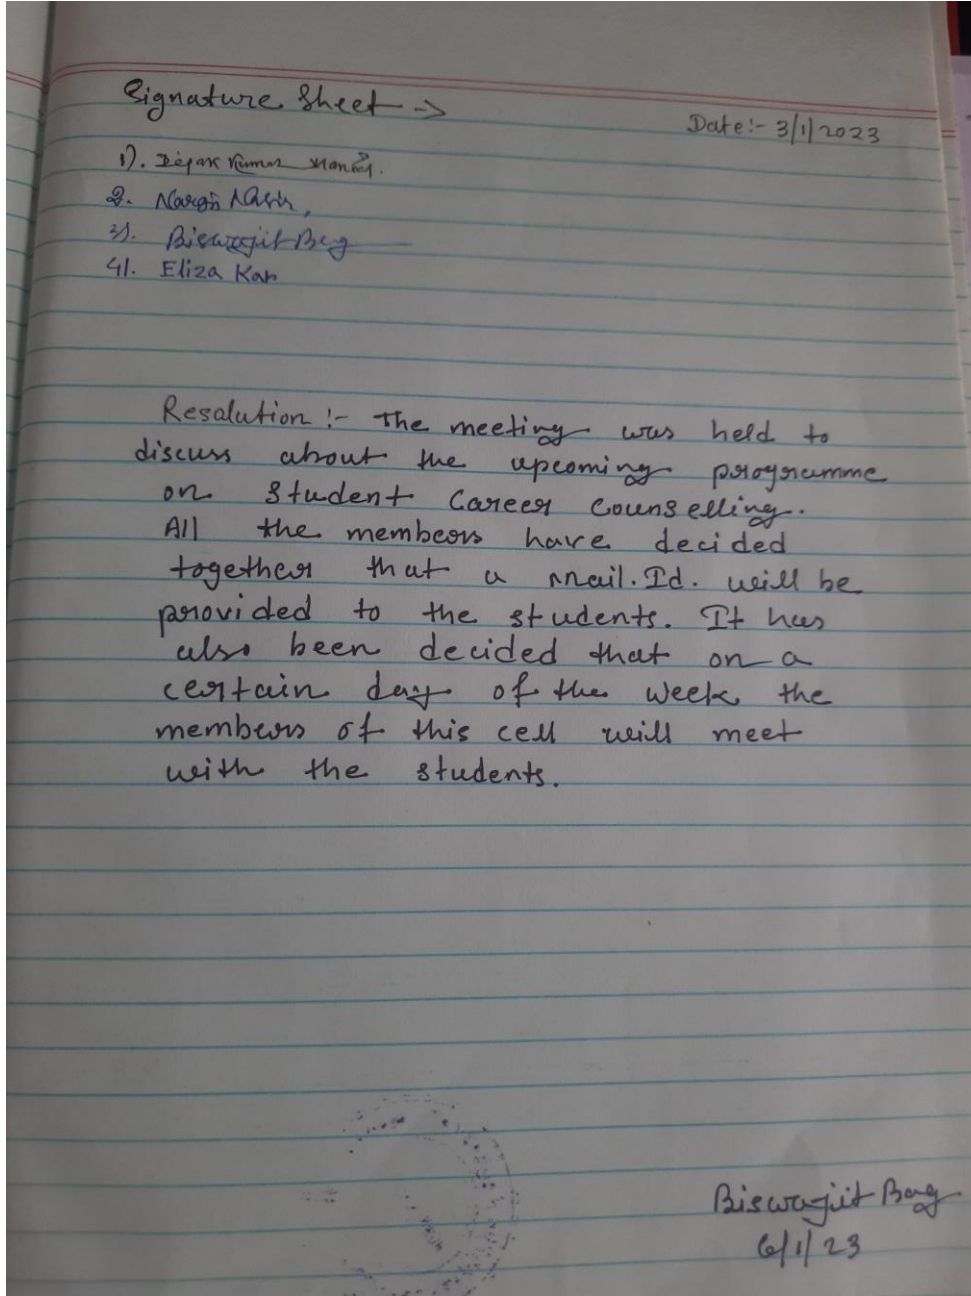 Signature Sheet →
Date:- 3/1/2023
1). Dipak Kumar
2. Nargis Nasir,
3). Biswajit Bag
4). Eliza Kar
Resalution :- The meeting was held to
discuss about the upcoming programme
on Student Career Counselling.
All the members have decided
together that a mail.Id. will be
provided to the students. It has
also been decided that on a
certain day of the week the
members of this cell will meet
with the students.
Biswajit Bag
6/1/23